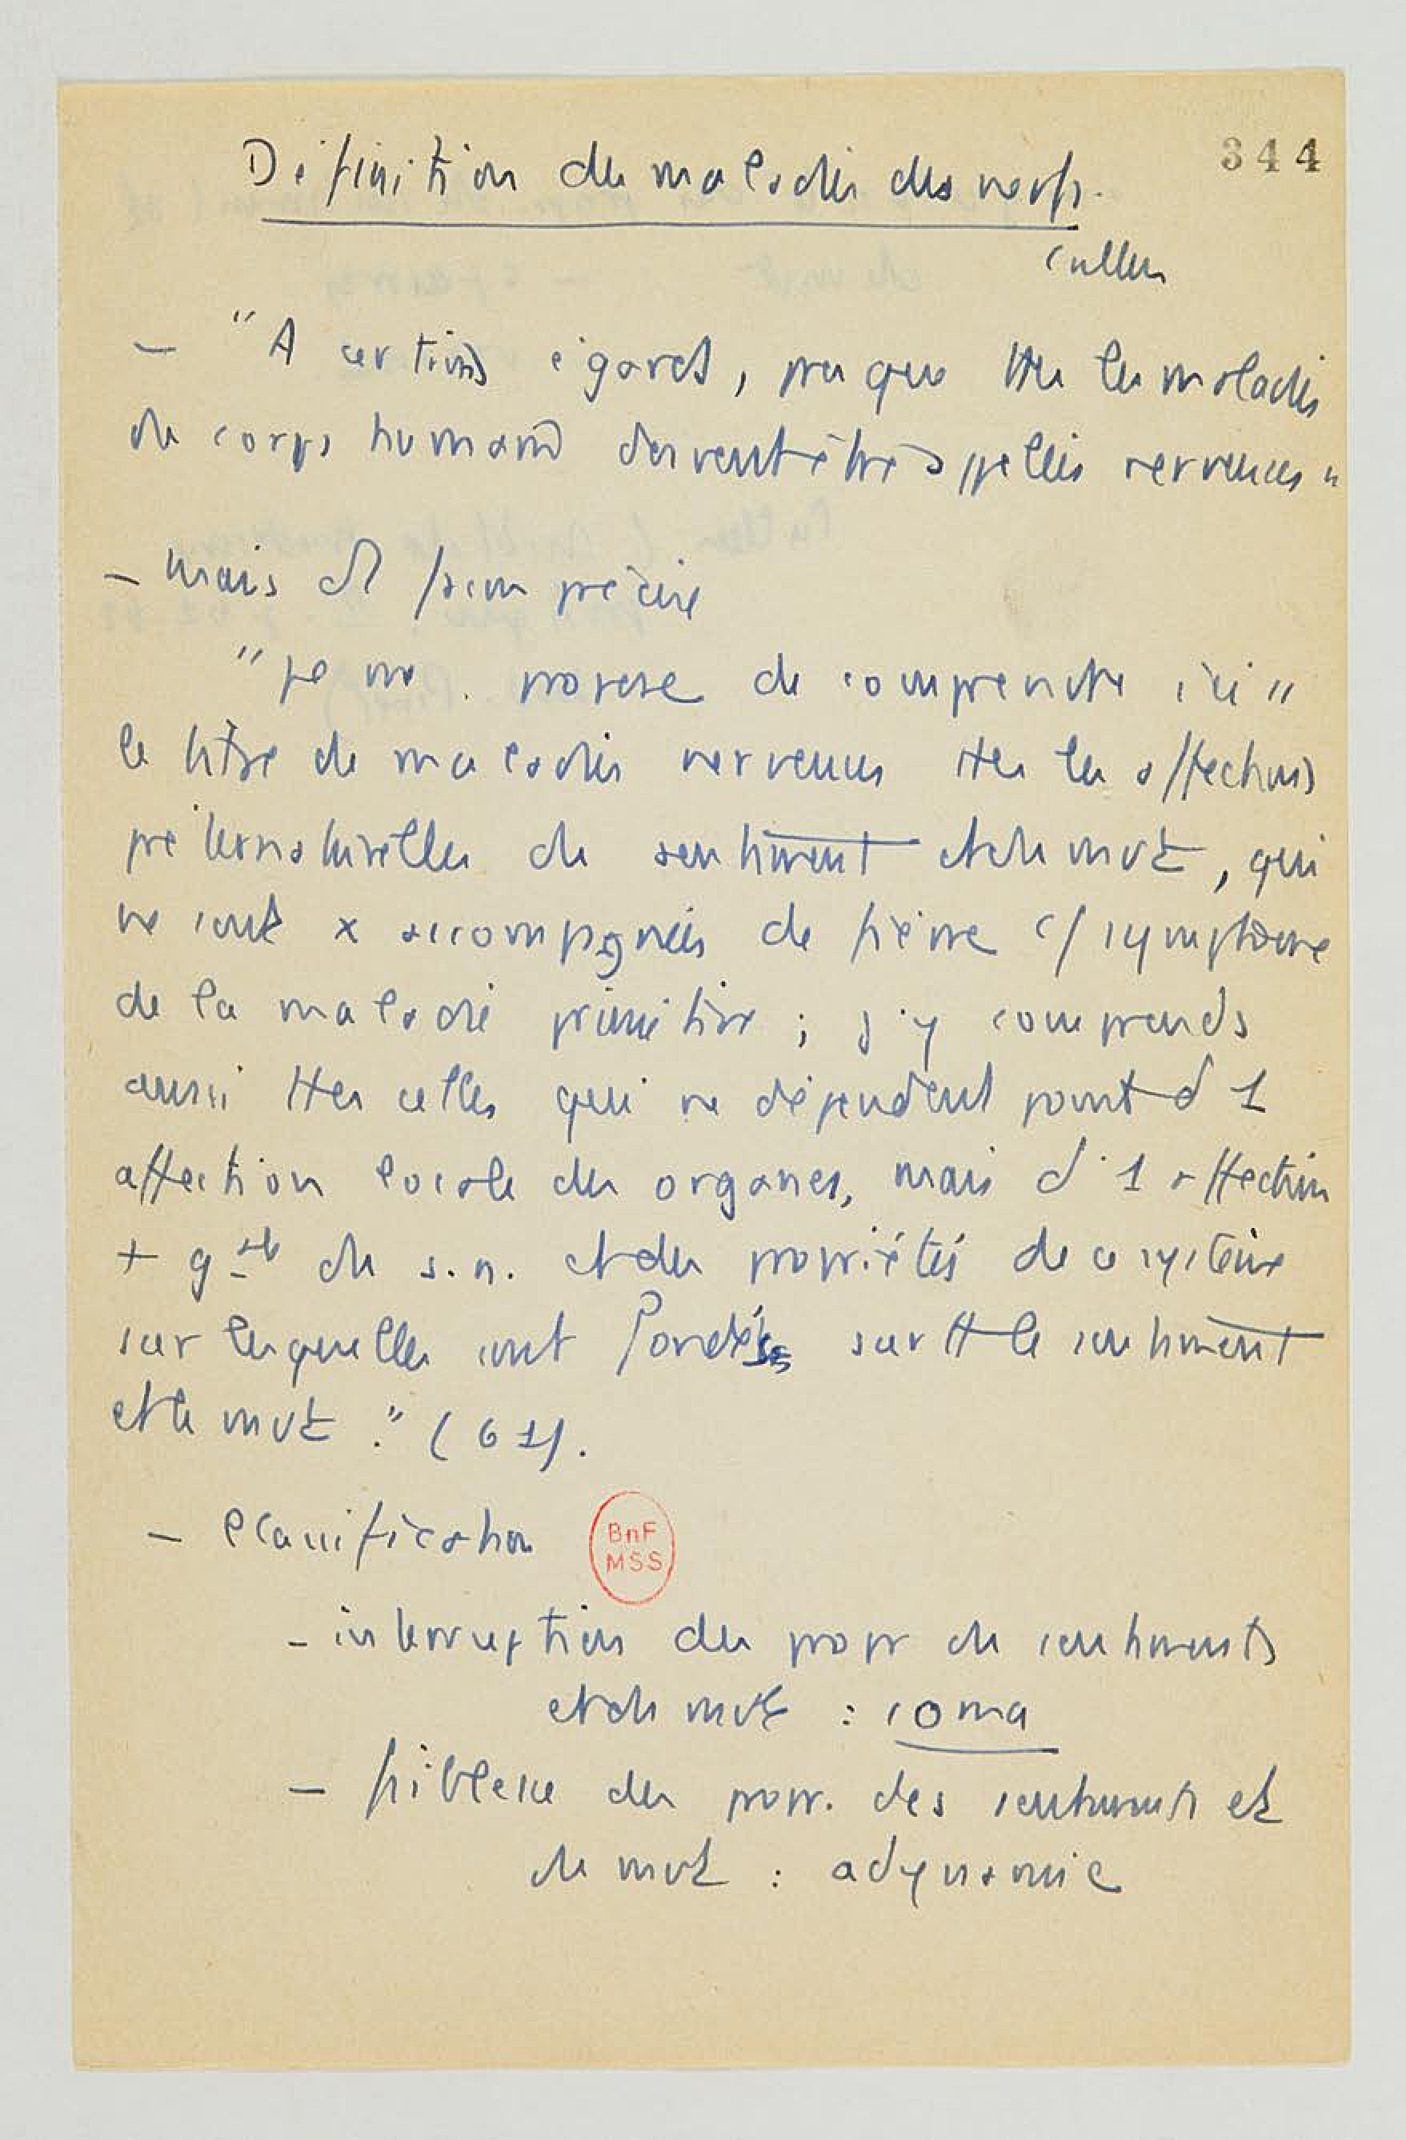 344
Définition des maladies des nerfs.
Cullen
– "A certains égards, presque ttes les maladies
du corps humain doivent être appellées nerveuses"
– mais il faut préciser
"je me propose de comprendre ici"
le titre de maladies nerveuses ttes les affections
préternaturelles du sentiment et du mvt, qui
ne sont x accompagnées de fièvre c/ symptôme
de la maladie primitive ; j'y comprends
aussi ttes celles qui ne dépendent point d'1
affection locale des organes, mais d'1 affection
+ gale du s.n. et des propriétés de ce système
sur lesquelles sont fondés surtt le sentiment
et le mvt." (61).
– classification
BnF
MSS
– interruption des propr du sentiments
et du mvt : coma
– faiblesse des propr. des sentiments et
du mvt : adynamie